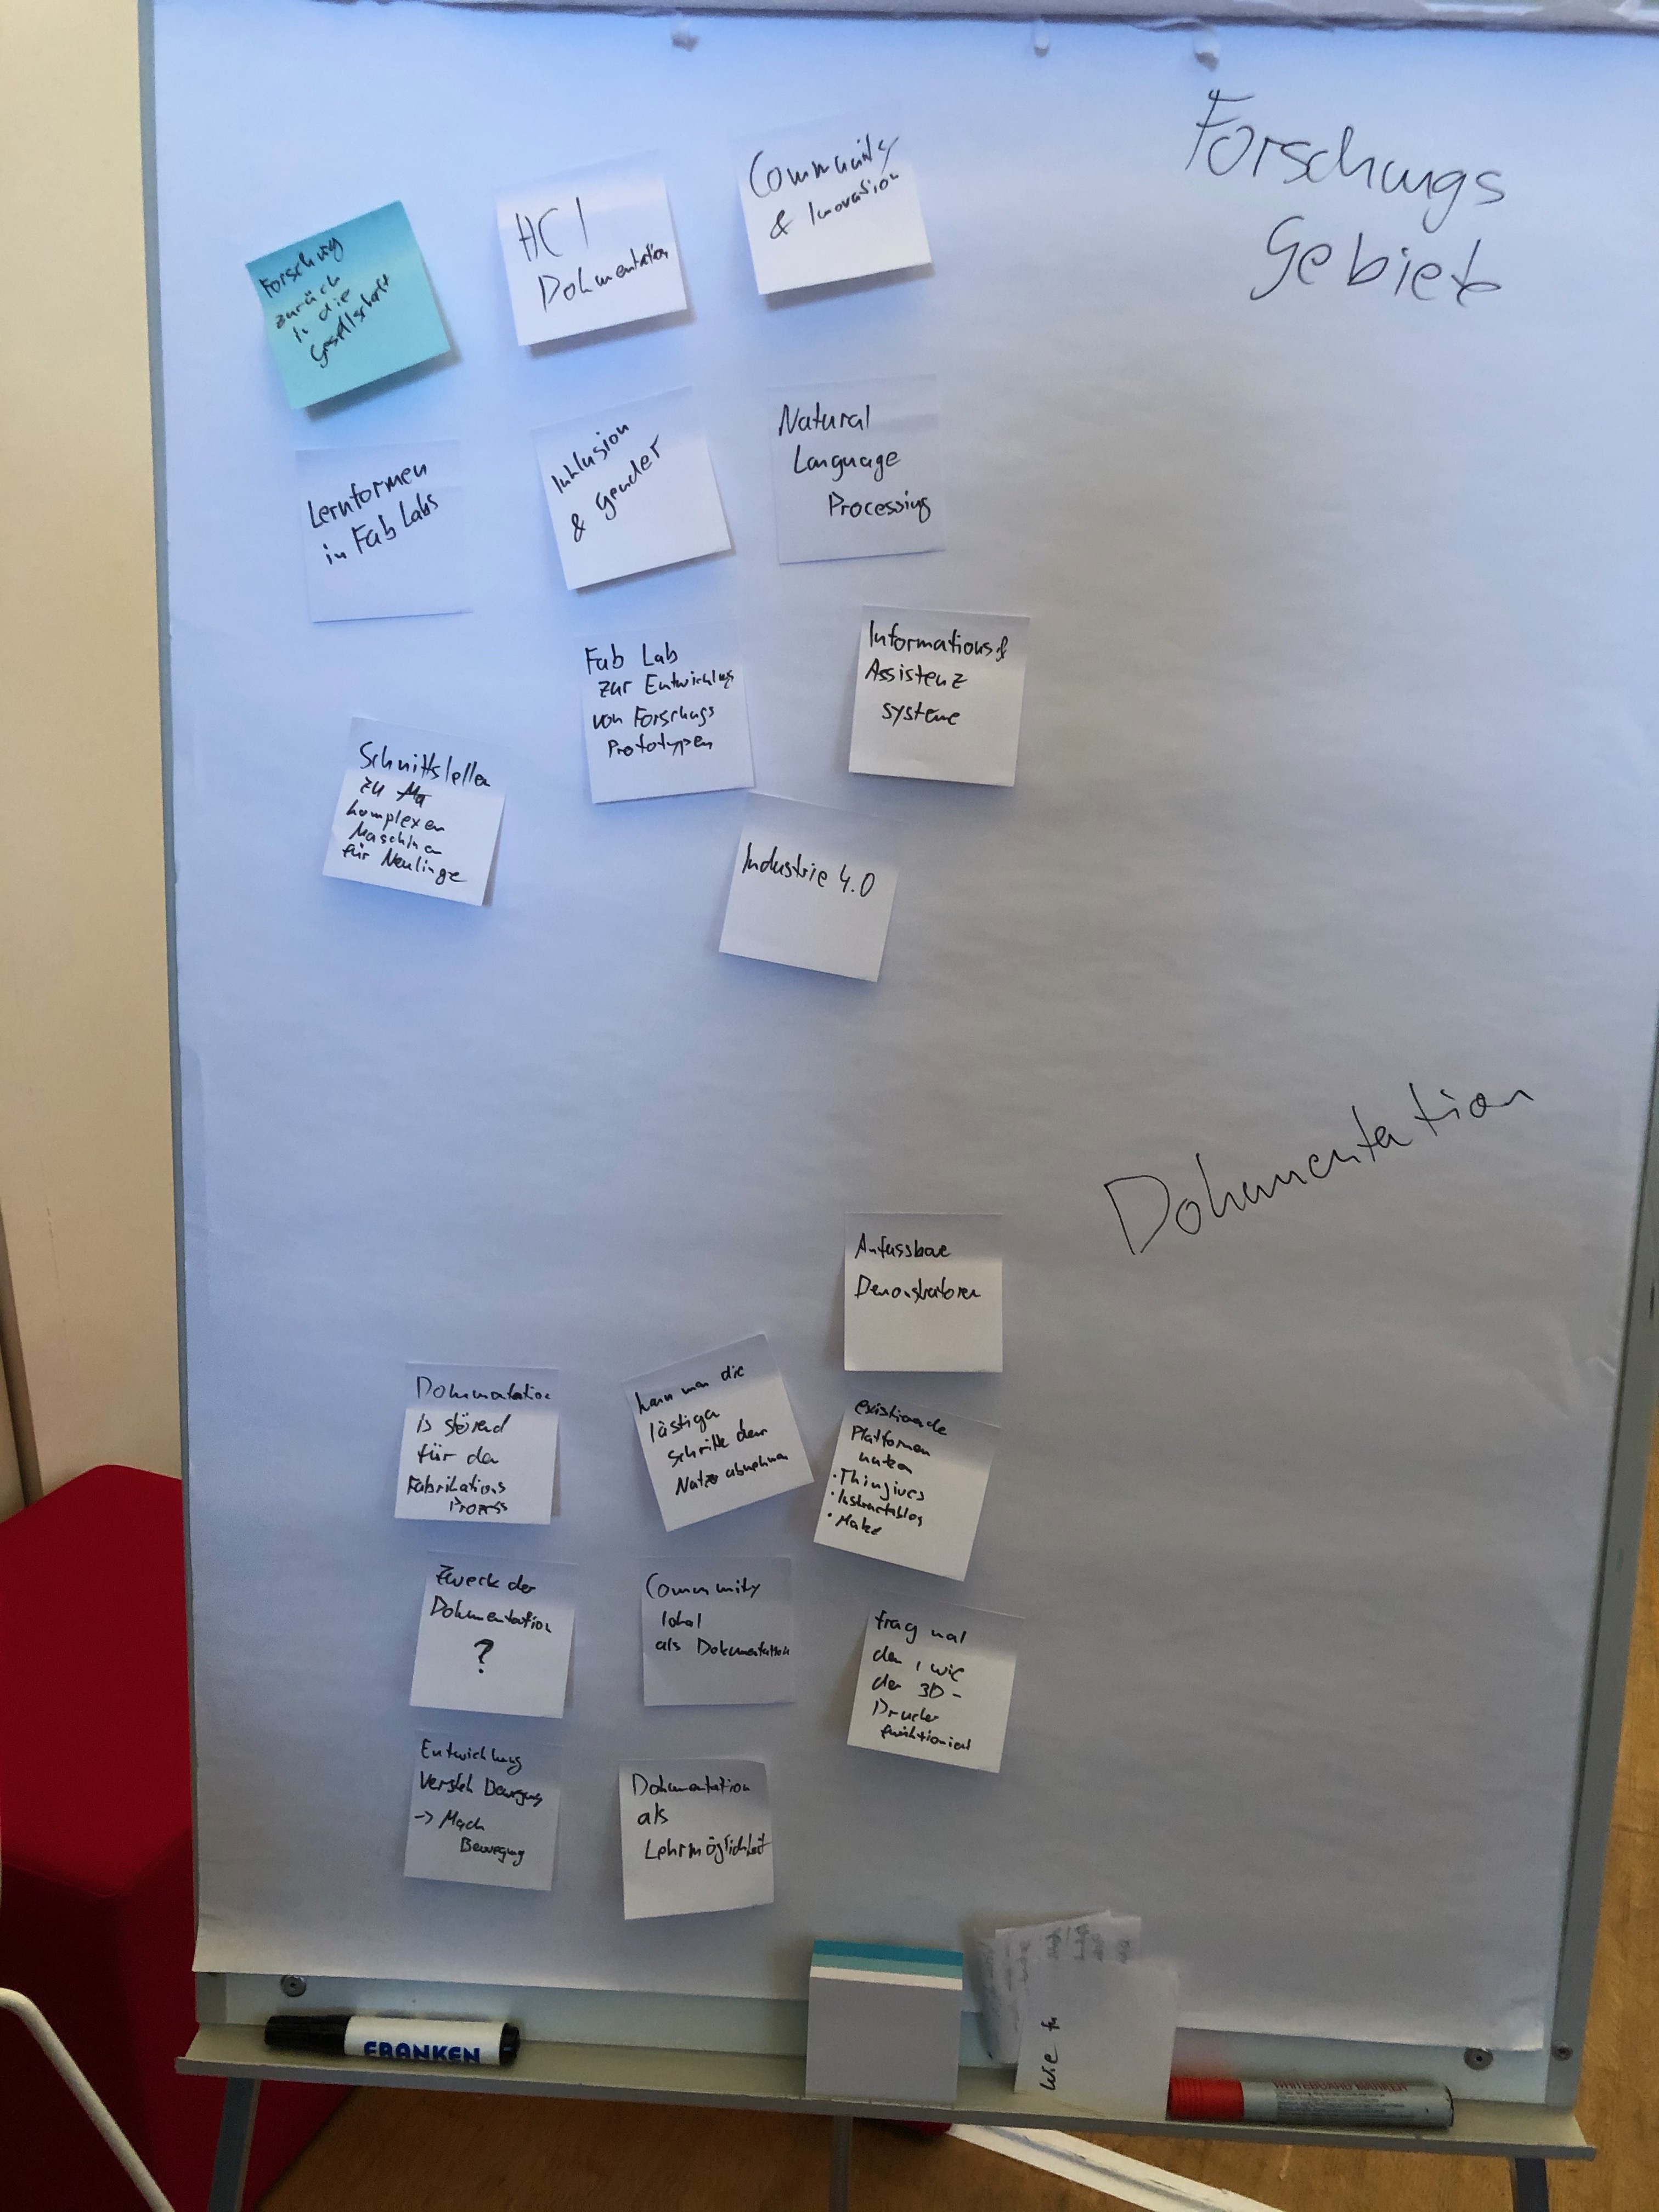 Forschungs
Gebiet
Forschung
zurück
in die
Gesellschaft
HCI
Dokumentation
Community
& Inovation
Lernformen
in Fab Labs
Inklusion
& Gender
Natural
Language
Processing
Fab Lab
zur Entwicklung
von Forschungs
Prototypen
Informations&
Assistenz
systeme
Schnittstellen
zu
komplexen
Maschinen
für Neulinge
Industrie 4.0
Dokumentation
Anfassbare
Demonstratoren
Dokumentation
is störend
für den
Fabrikations
Prozess
kann man die
lästigen
schritte dem
Nutzer abnehmen
existierende
Platformen
nutzen
• Thingivers
• Instructables
• Make
Zweck der
Dokumentation
?
Community
lokal
als Dokumentation
frag mal
den, wie
der 3D-
Drucker
funktioniert
Entwicklung
Versteh Bewegung
-> Mach
Bewegung
Dokumentation
als
Lehrmöglichkeit
wie
FRANKEN
WHITEBOARD MARKER